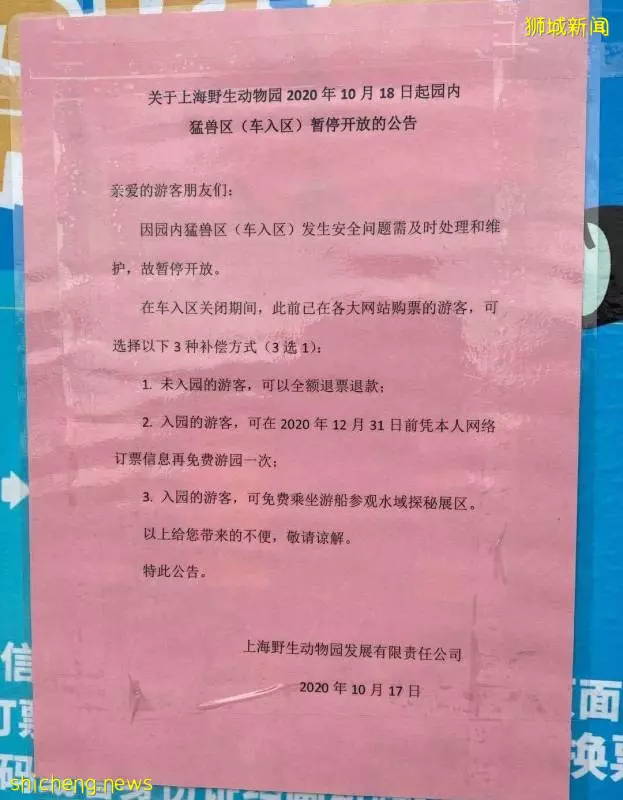 狮城新闻
关于上海野生动物园 2020 年 10 月 18 日起园内
猛兽区（车入区）暂停开放的公告
亲爱的游客朋友们：
因园内猛兽区（车入区）发生安全问题需及时处理和维
护，故暂停开放。
在车入区关闭期间，此前已在各大网站购票的游客，可
选择以下 3 种补偿方式（3 选 1）：
1. 未入园的游客，可以全额退票退款；
2. 入园的游客，可在 2020 年 12 月 31 日前凭本人网络
订票信息再免费游园一次；
3. 入园的游客，可免费乘坐游船参观水域探秘展区。
以上给您带来的不便，敬请谅解。
特此公告。
上海野生动物园发展有限责任公司
2020 年 10 月 17 日
信
订票
码
页面
换票
shicheng.news